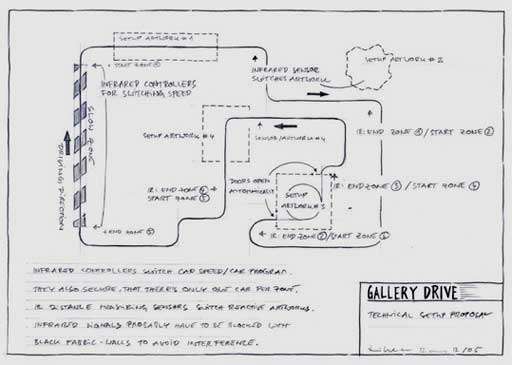 SETUP ARTWORK #1
START ZONE ①
INFRARED CONTROLLERS
FOR SWITCHING SPEED
INFRARED SENSOR
SWITCHES ARTWORK
SETUP ARTWORK #2
SLOW ZONE
DRIVING DIRECTION
SETUP ARTWORK #4
SENSOR/ARTWORK #4
IR: END ZONE ①/START ZONE ②
DOORS OPEN
AUTOMATICALLY
SETUP
ARTWORK #3
IR: END ZONE ③ / START ZONE ④
IR: END ZONE ④
START ZONE ⑤
END ZONE ⑤
IR: END ZONE ②/START ZONE ③
INFRARED CONTROLLERS SWITCH CAR SPEED/CAR PROGRAM.
THEY ALSO SECURE, THAT THERE'S ONLY ONE CAR PER ZONE.
IR DISTANCE MEASURING SENSORS SWITCH REACTIVE ARTWORKS.
INFRARED SIGNALS PROBABLY HAVE TO BE BLOCKED WITH
BLACK FABRIC-WALLS TO AVOID INTERFERENCE.
GALLERY DRIVE
TECHNICAL SETUP PROPOSAL
12/05